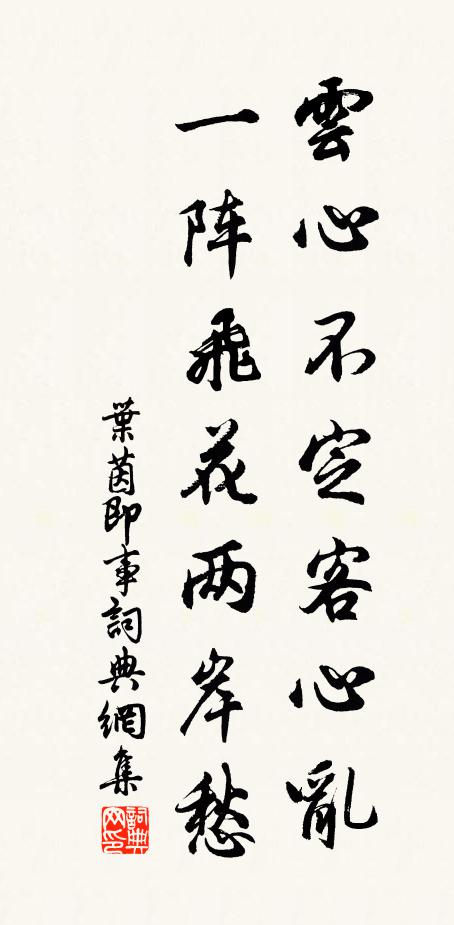 雲心不定客心亂
一阵飛花两岸愁
葉茵即事詞典網集
詞典网印